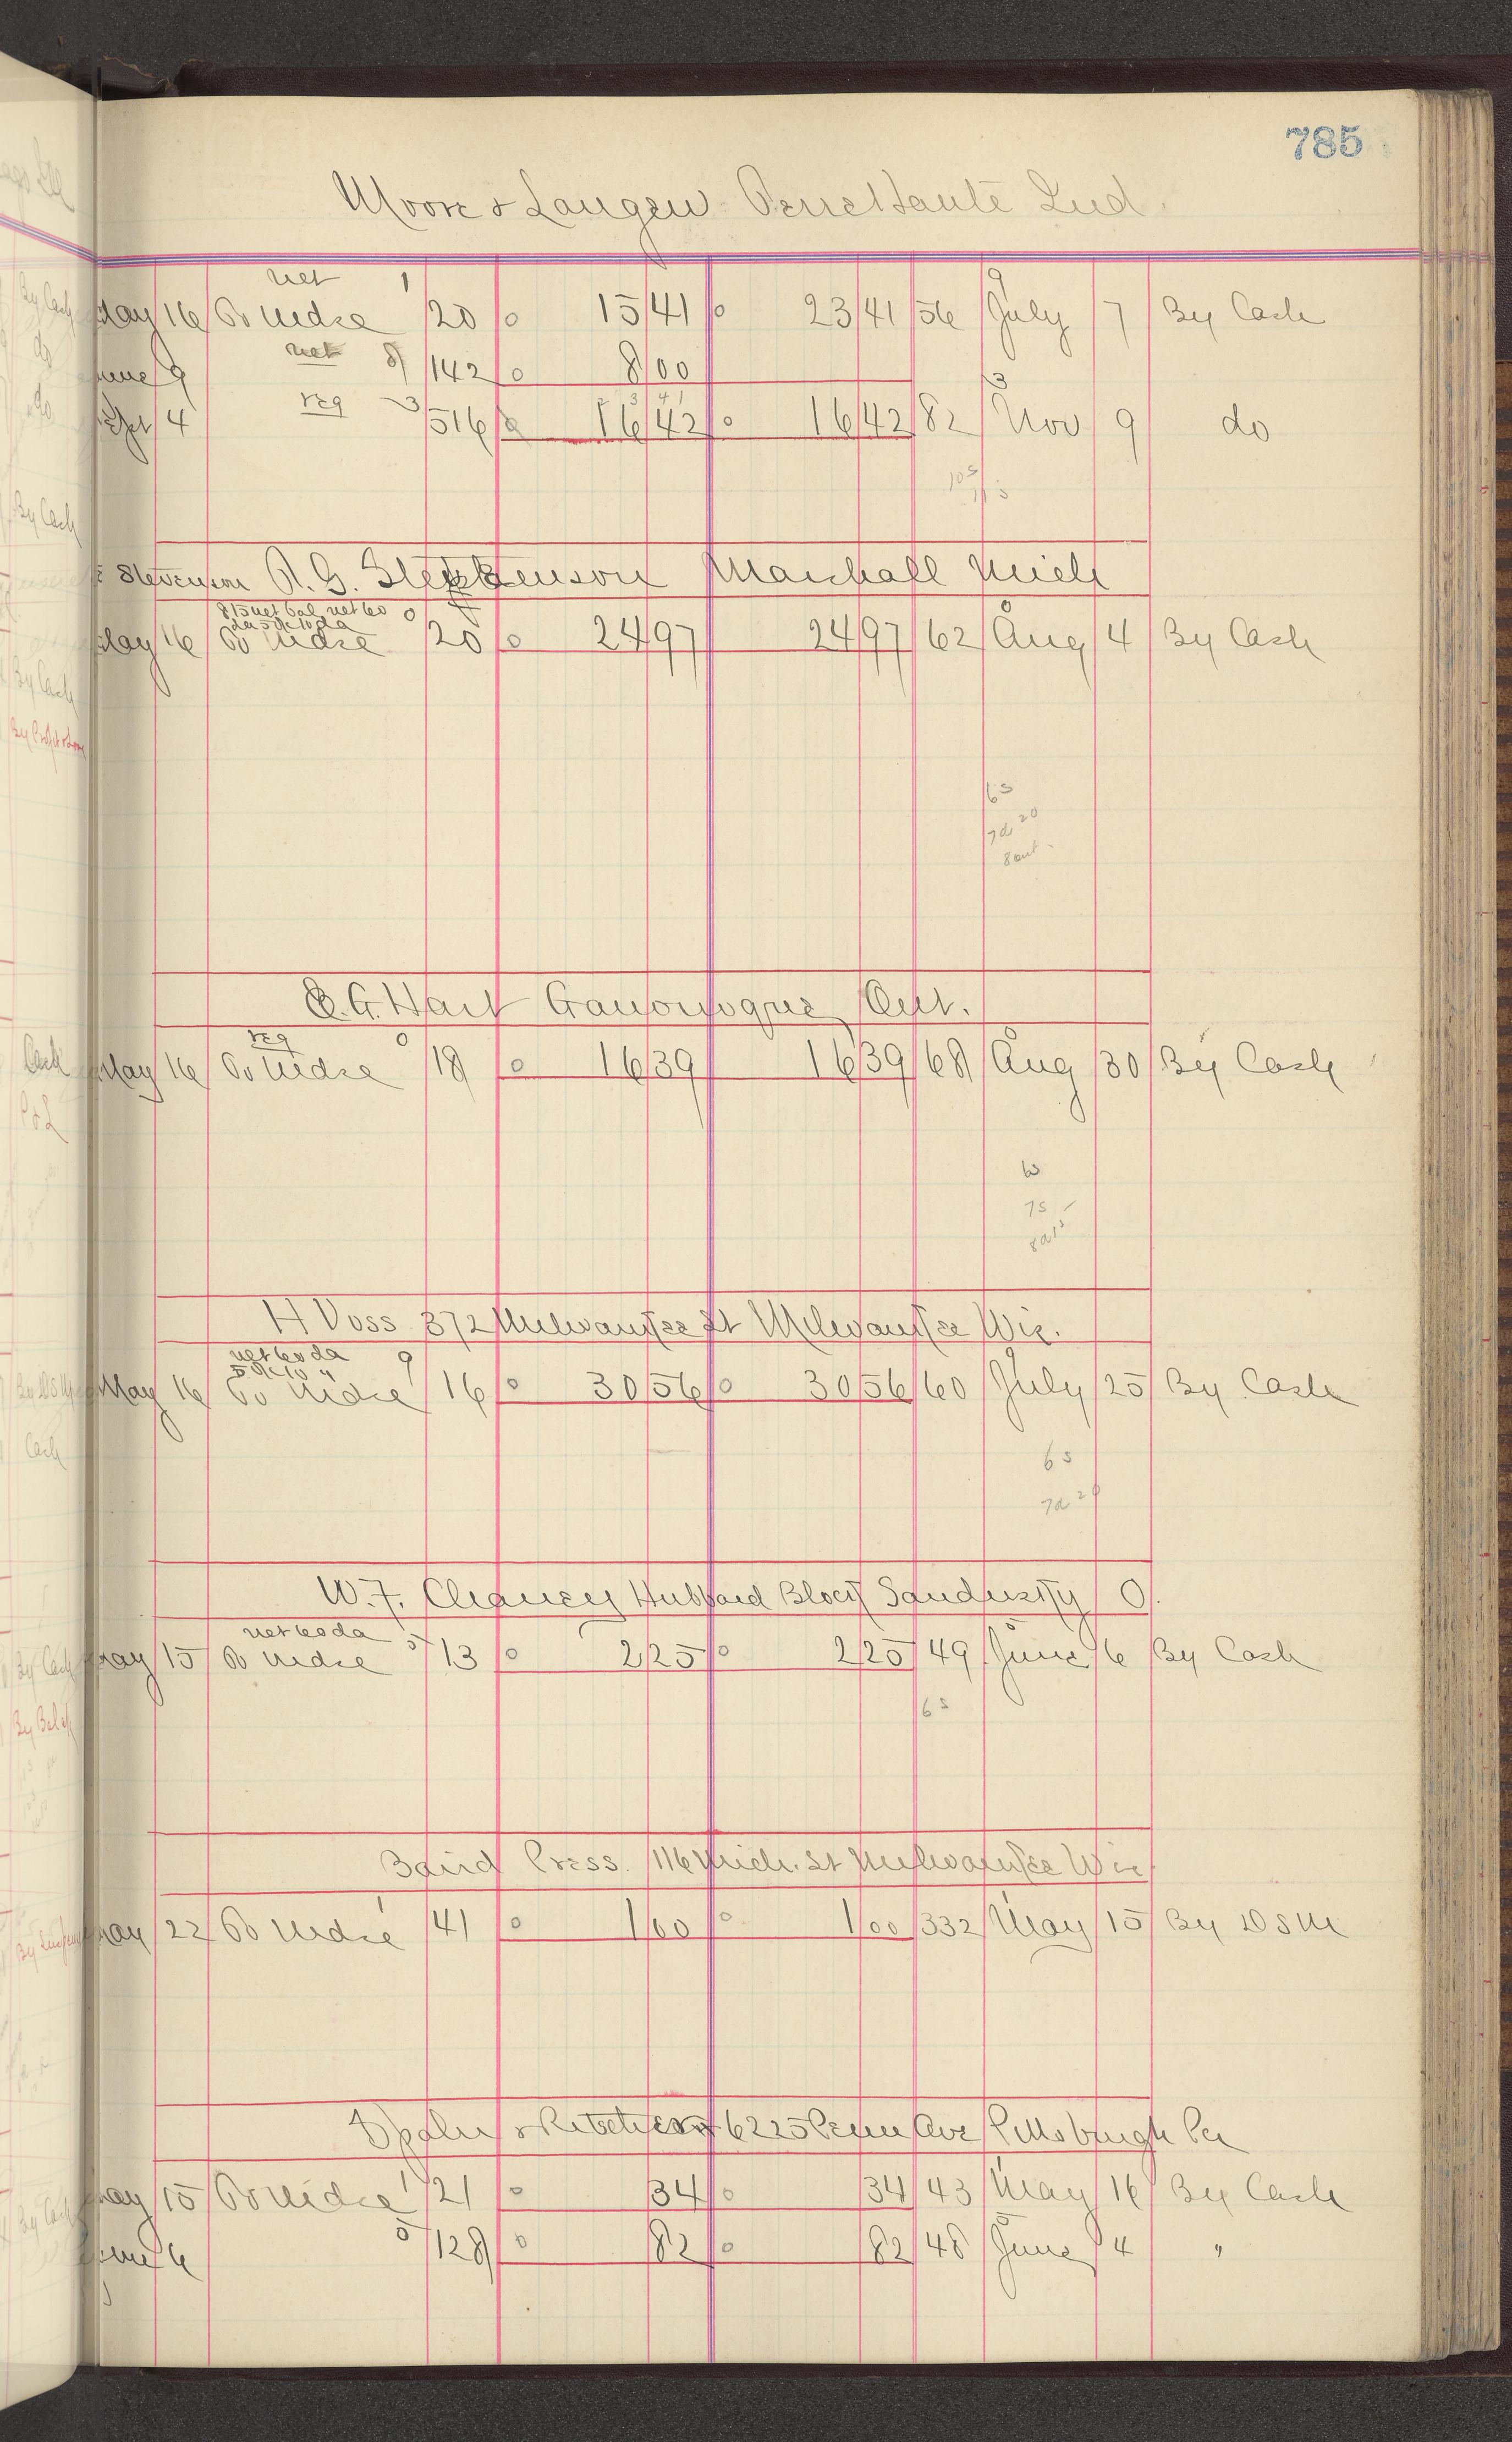 785
Moore & Langen Terre Haute Ind.
net 1 9
May 16 To Mdse 20 0 15 41 0 23 41 56 July 7 By Cash
net 8
June 9 142 0 8 00
reg 3 3
Sept 4 516 0 16 42 0 16 42 82 Nov 9 do
10 s
11 s
Stevenson R. G. Stevenson Marshall Mich
8 15 net bal net 60 0 8
da 5 % 10 da
May 16 To Mdse 20 0 24 97 24 97 62 Aug 4 By Cash
6 s
7 d 20
8 out
C. G. Hart Gananoque Ont.
reg 0 8
May 16 To Mdse 18 0 16 39 16 39 68 Aug 30 By Cash
6
7 s
H Voss 372 Milwaukee St Milwaukee Wis.
net 60 da 9 9
5 % 10 "
May 16 To Mdse 16 0 30 56 0 30 56 60 July 25 By Cash
6 s
7 d 20
W. F. Chaney Hubbard Block Sandusky O.
net 60 da 5 5
May 15 To Mdse 13 0 2 25 0 2 25 49 June 6 By Cash
6 s
Baird Press. 116 Mich. St Milwaukee Wis
1 1
May 22 To Mdse 41 0 1 00 0 1 00 332 May 15 By DSM
& 6225 Penn Ave Pittsburgh Pa
May 15 To Mdse 1 21 0 34 0 34 43 May 16 By Cash
June 6 5 128 0 82 0 82 48 June 4 "